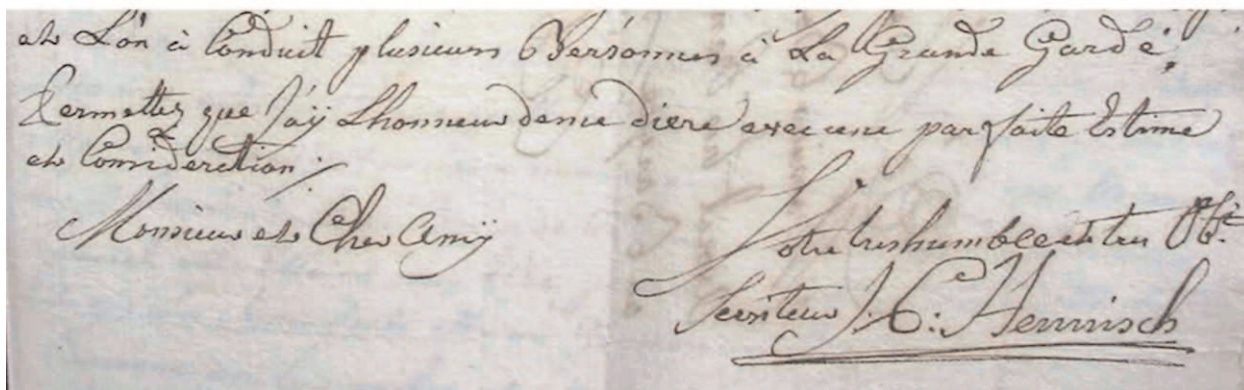 et L'on à Conduit plusieurs Personnes à La Grande Garde,
Permettez que J'aÿ Lhonneur de me diere avec une parfaite Estime
et Consideration
Monsieur et Cher Amÿ
Votre tres humble et tres Obt
Serviteur J. C: Hennisch